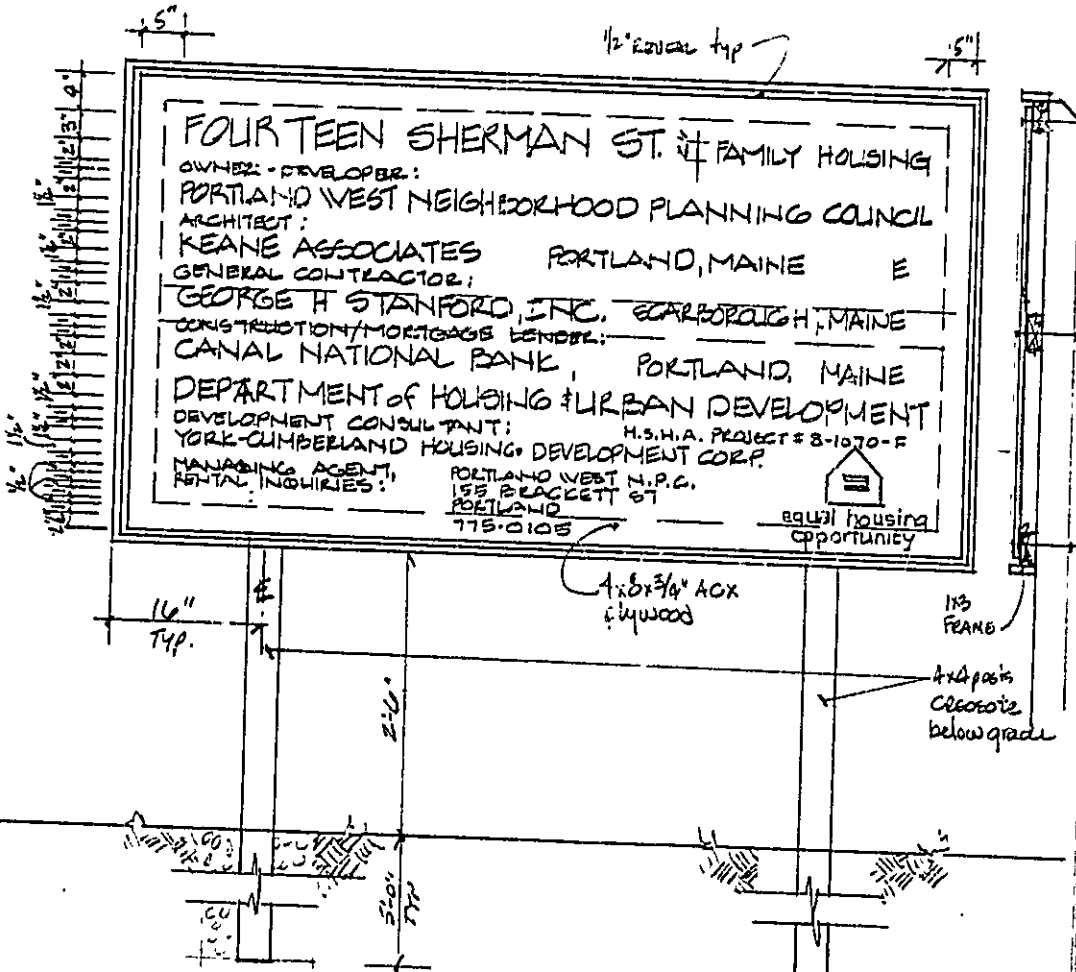 5"
1/2" REVEAL typ
5"
4"
3"
FOURTEEN SHERMAN ST. FAMILY HOUSING
OWNER-DEVELOPER:
PORTLAND WEST NEIGHBORHOOD PLANNING COUNCIL
ARCHITECT:
KEANE ASSOCIATES PORTLAND, MAINE E
GENERAL CONTRACTOR:
GEORGE H STANFORD, INC. SCARBOROUGH, MAINE
CONSTRUCTION/MORTGAGE LENDER:
CANAL NATIONAL BANK, PORTLAND, MAINE
DEPARTMENT of HOUSING & URBAN DEVELOPMENT
DEVELOPMENT CONSULTANT:
H.S.H.A. PROJECT # 8-1070-F
YORK-CUMBERLAND HOUSING DEVELOPMENT CORP.
MANAGING AGENT,
RENTAL INQUIRIES:
PORTLAND WEST N.P.C.
155 BRACKETT ST
PORTLAND
775-0105
equal housing
opportunity
4x8x3/4" ACX
plywood
1x3
FRAME
16"
TYP.
2'-6"
4x4 posts
CREOSOTE
below grade
3'-0"
TYP